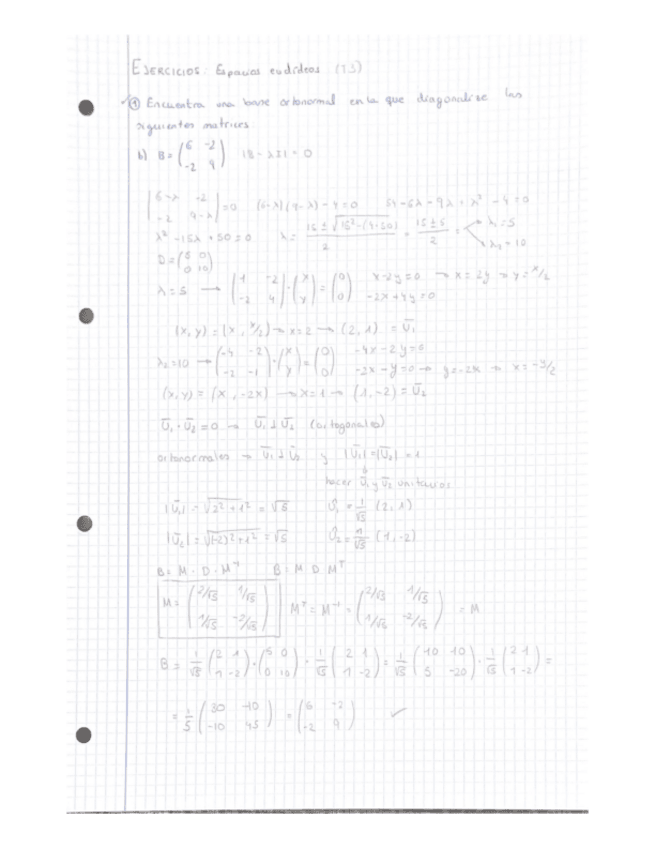 EJERCICIOS: Espacios euclídeos (T5)
① Encuentra una base ortonormal en la que diagonalise las
siguientes matrices
b) B = (6 -2; -2 9) |B - λI| = 0
|6-λ -2; -2 9-λ| = 0 (6-λ)(9-λ) - 4 = 0 54 - 6λ - 9λ + λ² - 4 = 0
λ² - 15λ + 50 = 0 λ = (15 ± √(15² - (4·50)))/2 = (15 ± 5)/2 = λ₁ = 5 λ₂ = 10
D = (5 0; 0 10)
λ = 5 → (1 -2; -2 4)·(x; y) = (0; 0) x - 2y = 0 → x = 2y → y = x/2
-2x + 4y = 0
(x, y) = (x, x/2) → x = 2 → (2, 1) = Ū₁
λ₂ = 10 → (-4 -2; -2 -1)·(x; y) = (0; 0) -4x - 2y = 0
-2x - y = 0 → y = -2x → x = -y/2
(x, y) = (x, -2x) → x = 1 → (1, -2) = Ū₂
Ū₁ · Ū₂ = 0 → Ū₁ ⊥ Ū₂ (ortogonales)
ortonormales → Ū₁ ⊥ Ū₂ y |Ū₁| = |Ū₂| = 1
hacer Ū₁ y Ū₂ unitarios
|Ū₁| = √(2² + 1²) = √5 Û₁ = 1/√5 (2, 1)
|Ū₂| = √((-2)² + 1²) = √5 Û₂ = 1/√5 (1, -2)
B = M · D · M⁻¹ B = M D Mᵀ
M = (2/√5 1/√5; 1/√5 -2/√5) Mᵀ = M⁻¹ = (2/√5 1/√5; 1/√5 -2/√5) = M
B = 1/√5 (2 1; 1 -2)·(5 0; 0 10) · 1/√5 (2 1; 1 -2) = 1/√5 (10 10; 5 -20) · 1/√5 (2 1; 1 -2) =
= 1/5 (30 -10; -10 45) = (6 -2; -2 9) ✓